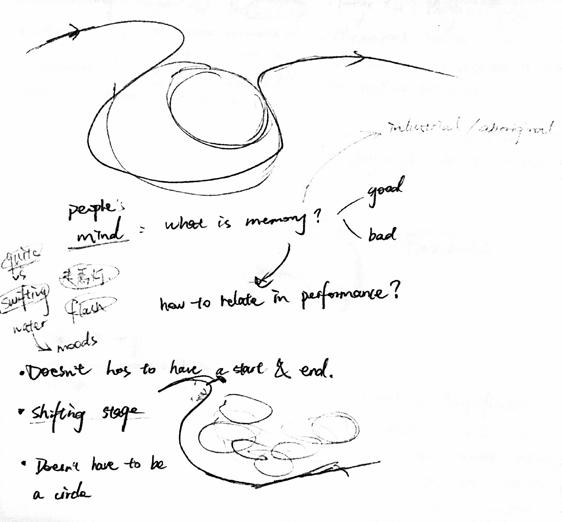 industrial / aboriginal
people's
mind : what is memory?
good
bad
quite
vs
shifting
flash
water
moods
how to relate in performance?
• Doesn't has to have a start & end.
• shifting stage
• Doesn't have to be
a circle